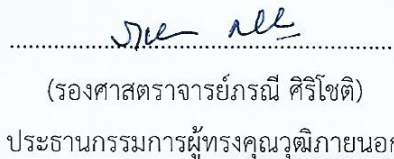 (รองศาสตราจารย์ภรณี ศิริโชติ)
ประธานกรรมการผู้ทรงคุณวุฒิภายนอก